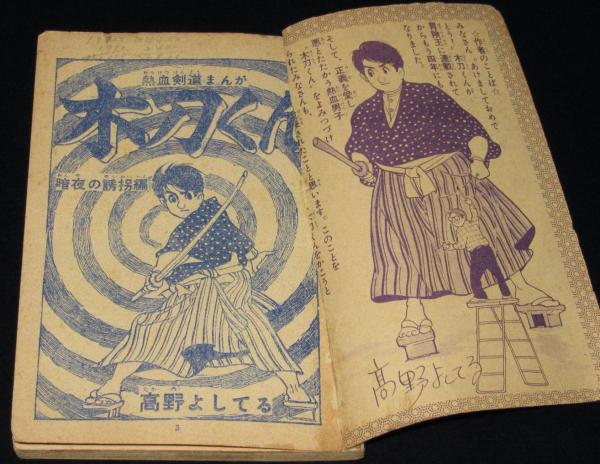 熱血剣道まんが
木刀くん
暗夜の誘拐編
高野よしてる
3
作者のことば
みなさん、あけましておめで
とう!木刀くんが
冒険王に連載されて
からもう四年にも
なりました。
そして、正義を愛し
悪とたたかう熱血男子
木刀くんをよみつづけ
られたみなさんも、
されたことと思います。このことを
くんをかこうと
高野よしてる